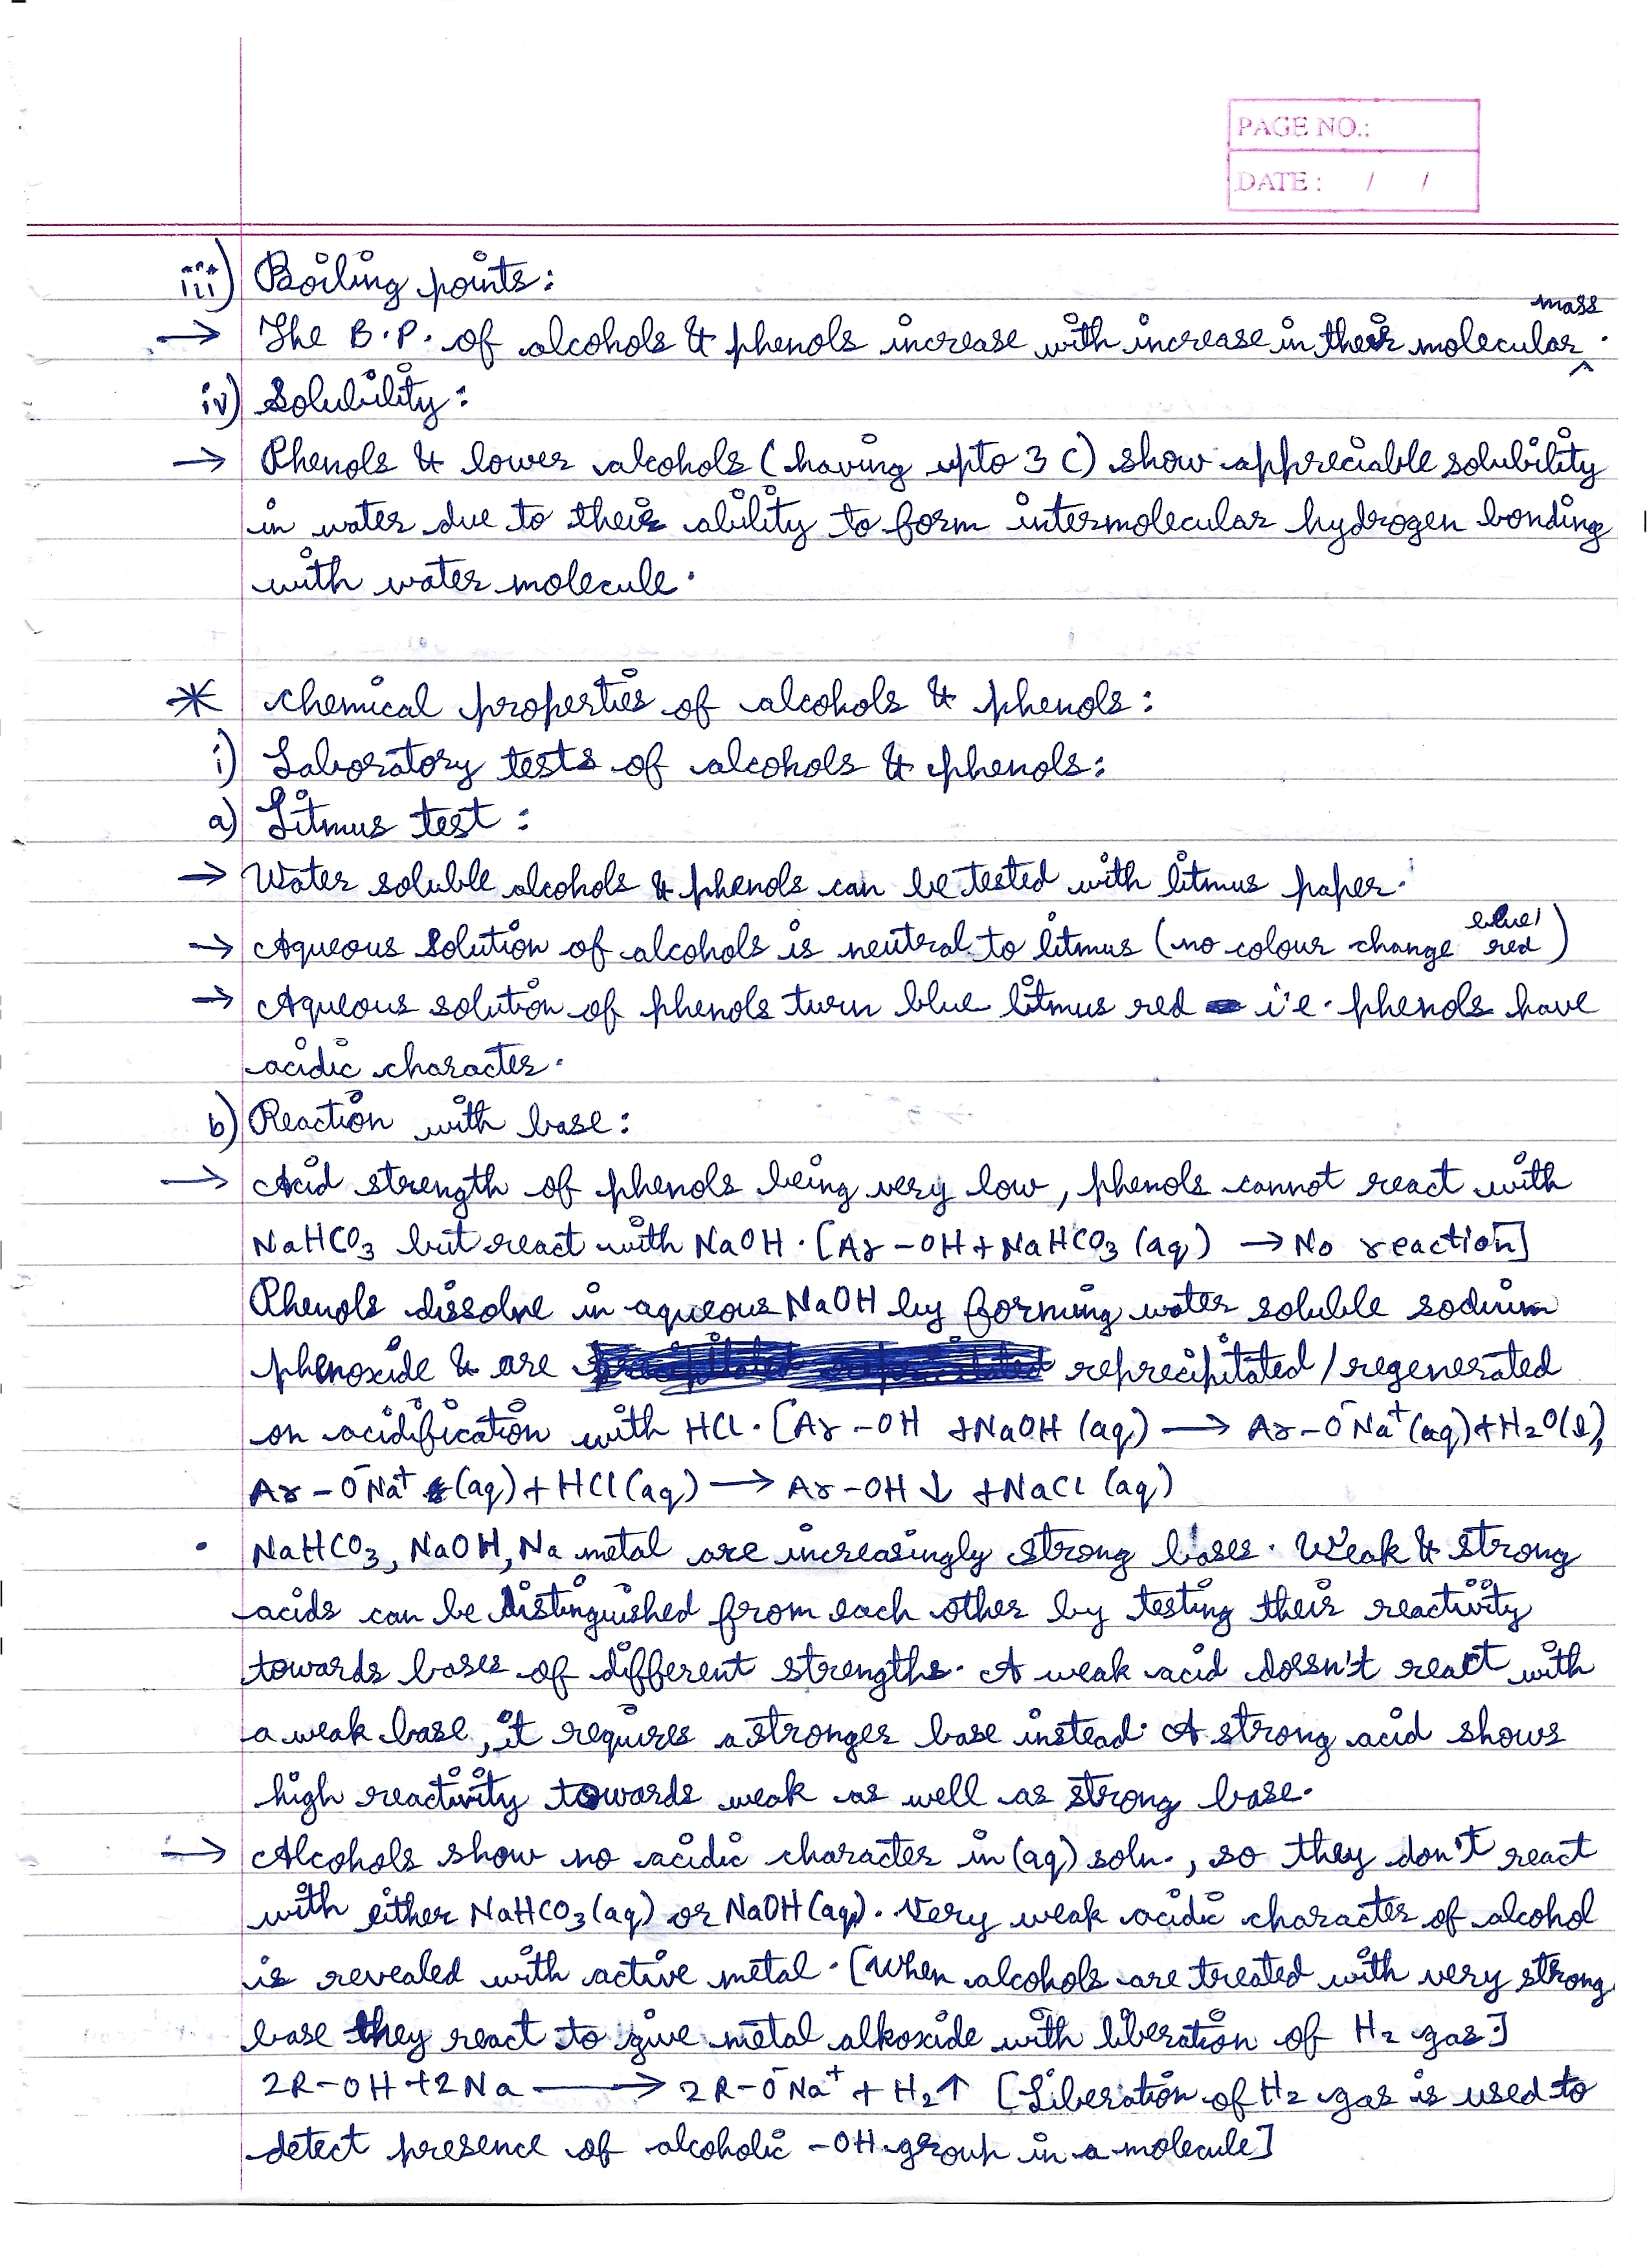 PAGE NO.:
DATE : / /
iii) Boiling points:
→ The B.P. of alcohols & phenols increase with increase in their molecular mass.
iv) Solubility:
→ Phenols & lower alcohols (having upto 3 C) show appreciable solubility
in water due to their ability to form intermolecular hydrogen bonding
with water molecule.
* Chemical properties of alcohols & phenols:
i) Laboratory tests of alcohols & phenols:
a) Litmus test :
→ Water soluble alcohols & phenols can be tested with litmus paper.
→ Aqueous solution of alcohols is neutral to litmus (no colour change blue/red)
→ Aqueous solution of phenols turn blue litmus red i.e. phenols have
acidic character.
b) Reaction with base:
→ Acid strength of phenols being very low, phenols cannot react with
NaHCO₃ but react with NaOH. [Ar-OH + NaHCO₃ (aq) → No reaction]
Phenols dissolve in aqueous NaOH by forming water soluble sodium
phenoxide & are reprecipitated / regenerated
on acidification with HCl. [Ar-OH + NaOH (aq) → Ar-O⁻Na⁺(aq) + H₂O(l),
Ar-O⁻Na⁺ (aq) + HCl (aq) → Ar-OH ↓ + NaCl (aq)
• NaHCO₃, NaOH, Na metal are increasingly strong bases. Weak & strong
acids can be distinguished from each other by testing their reactivity
towards bases of different strengths. A weak acid doesn't react with
a weak base, it requires a stronger base instead. A strong acid shows
high reactivity towards weak as well as strong base.
→ Alcohols show no acidic character in (aq) soln., so they don't react
with either NaHCO₃(aq) or NaOH(aq). Very weak acidic character of alcohol
is revealed with active metal. [When alcohols are treated with very strong
base they react to give metal alkoxide with liberation of H₂ gas.]
2R-OH + 2Na → 2R-O⁻Na⁺ + H₂↑ [Liberation of H₂ gas is used to
detect presence of alcoholic -OH group in a molecule]